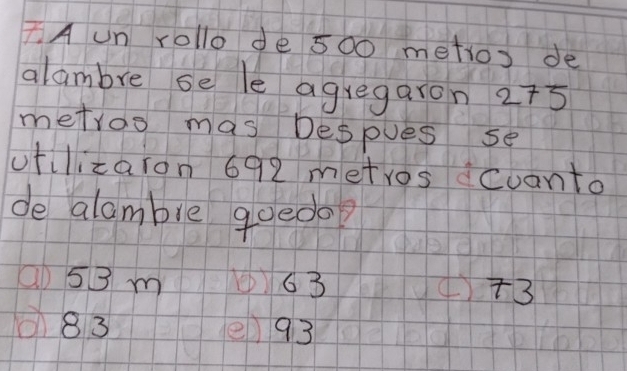 7. A un rollo de 500 metros de
alambre se le agregaron 275
metros mas Despues se
utilizaron 692 metros ¿cuanto
de alambre quedo?
a) 53 m b) 63 c) 73
d) 83 e) 93